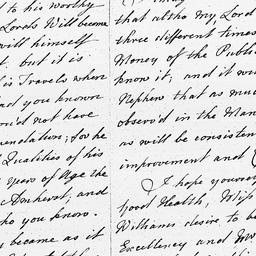 to his worthy
Lords Will become
will himself
t. but it is
his Travels when
had you known
ou'd not have
mendation; for he
Qualities of his
years of Age the
Amherst, and
who you know.
y became as it
that altho my Lord
three different times
Money of the Public
know it; and it wou
Nephew that as much
observ'd in the Man
as will be consistent
improvement and
I hope yourse
good Health, Miss
Williams desire to be
Excellency and